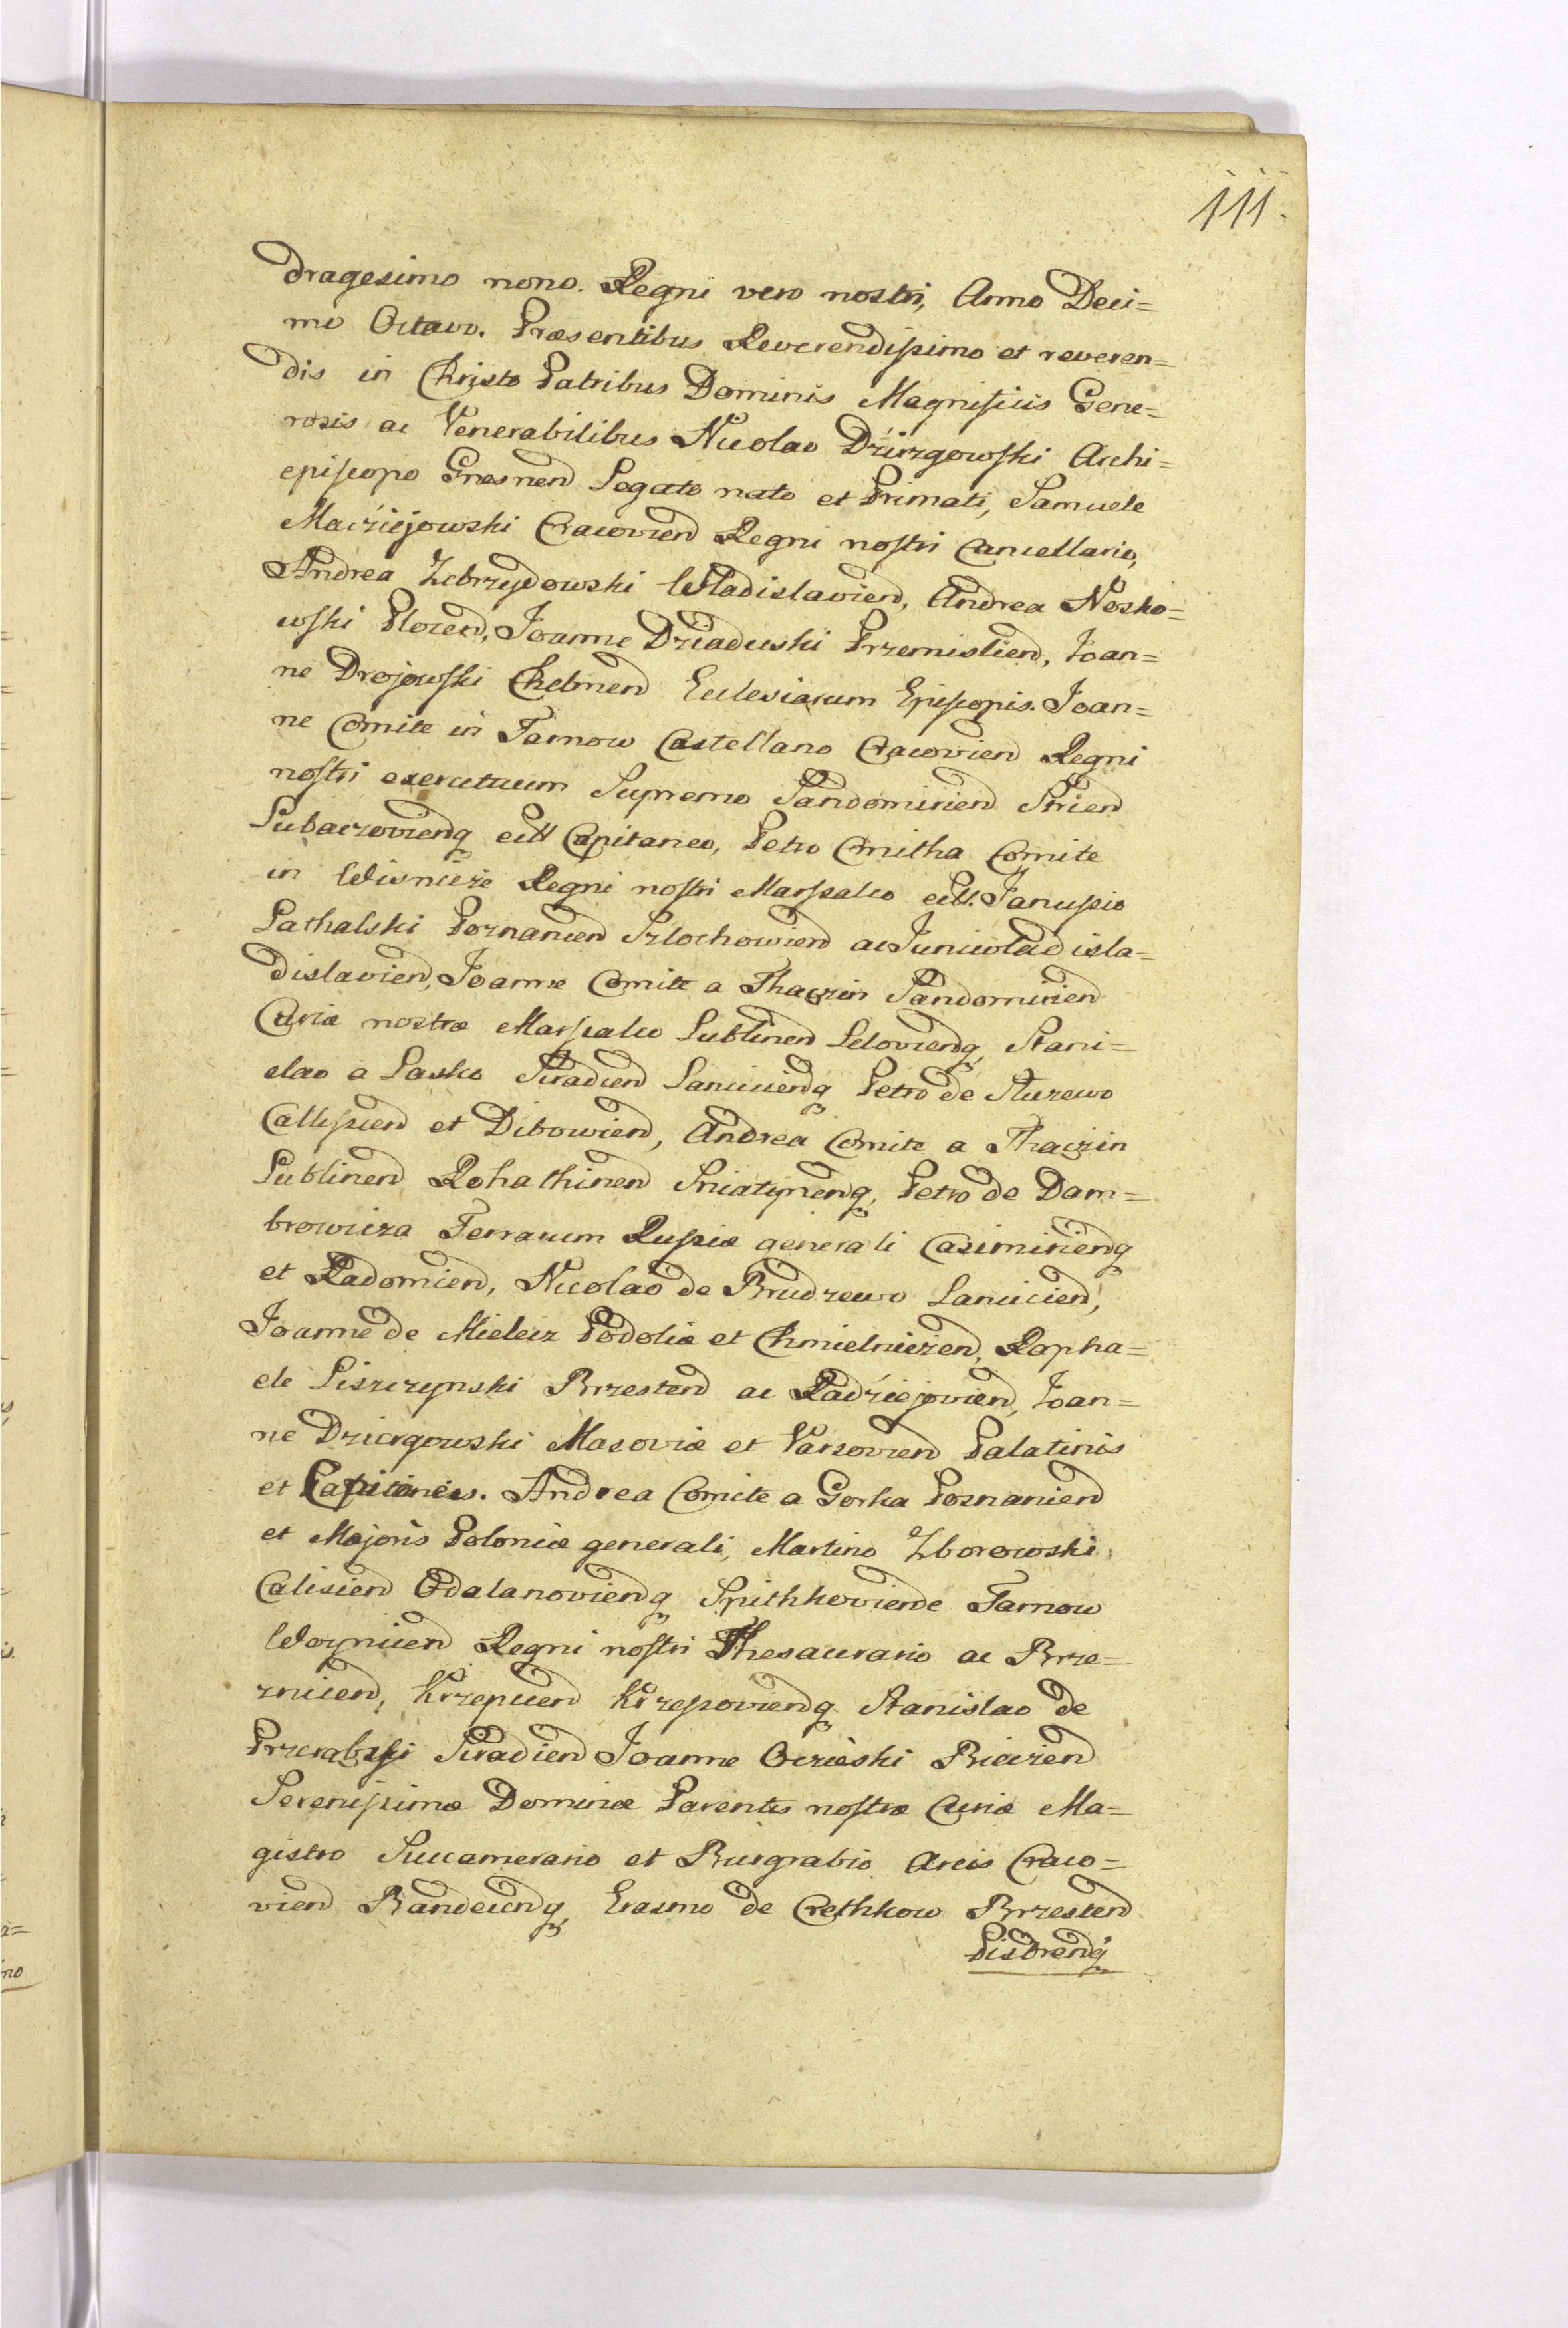 111.
dragesimo nono. Regni vero nostri, Anno Deci=
mo Octavo. Præsentibus Reverendissimo et reveren=
dis in Christo Patribus Dominis Magnificis Gene=
rosis ac Venerabilibus Nicolao Dzierzgowski Archi=
episcopo Gnesnen Legato nato et Primati, Samuele
Macziejowski Cracovien Regni nostri Cancellario,
Andrea Zebrzydowski Wladislavien, Andrea Nosko=
wski Plocen, Joanne Dziaduski Przemislien, Joan=
ne Drojowski Chelmen Ecclesiarum Episcopis. Joan=
ne Comite in Tarnow Castellano Cracovien Regni
nostri exercituum Supremo Sandomirien Strien
Lubaczovienq ett Capitaneo, Petro Cmitha Comite
in Wisnicze Regni nostri Marsalco ett. Janussio
Lathalski Poznanien Szlochowien ac Juniwladisla=
dislavien, Joanne Comite a Thaczin Sandomirien
Curiæ nostræ Marsalco Lublinen Lelovienq, Stani=
slao a Lasko Siradien Lanciciensq Petro de Sluzewo
Callissien et Dibowien, Andrea Comite a Thaczin
Lublinen Rohathinen Sniatynenq, Petro de Dam=
browicza Terrarum Russiæ generali Casimirienq
et Radomien, Nicolao de Brudzewo Lancicien,
Joanne de Mielecz Podoliæ et Chmielniczen, Rapha=
ele Leszczynski Brzesten ac Radziejovien, Joan=
ne Dziergowski Masoviæ et Varsovien Palatinis
et Capitaneis. Andrea Comite a Gorka Poznanien
et Majoris Poloniæ generali, Martino Zborowski
Calisien Odalanovienq Spithkoviende Tarnow
Woynicen Regni nostri Thesaurario ac Brze=
znicen, Krzepicen Krzeszovienq Stanislao de
Przerabski Siradien Joanne Oczieski Bieczen
Serenissimæ Dominæ Parentis nostræ Curiæ Ma=
gistro Succamerario et Burgrabio Arcis Craco=
vien Sandecenq, Erasmo de Crethkow Brzesten
Pisdrenq